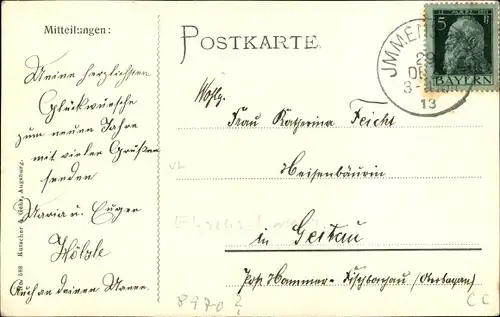 Mitteilungen:
POSTKARTE.
Meine herzlichsten
Glückwünsche
zum neuen Jahre
mit vielen Grüßen
senden
Maria u. Eugen
Hölzle
Auch an deinen Mann.
Wohlg.
Frau Katharina Feicht
in Geitau
Post Hammer-Fischbachau (Oberbayern)
JMMEN
29
3-
13
5
BAYERN
588 Kutscher & Gehr, Augsburg.
8970?
CC